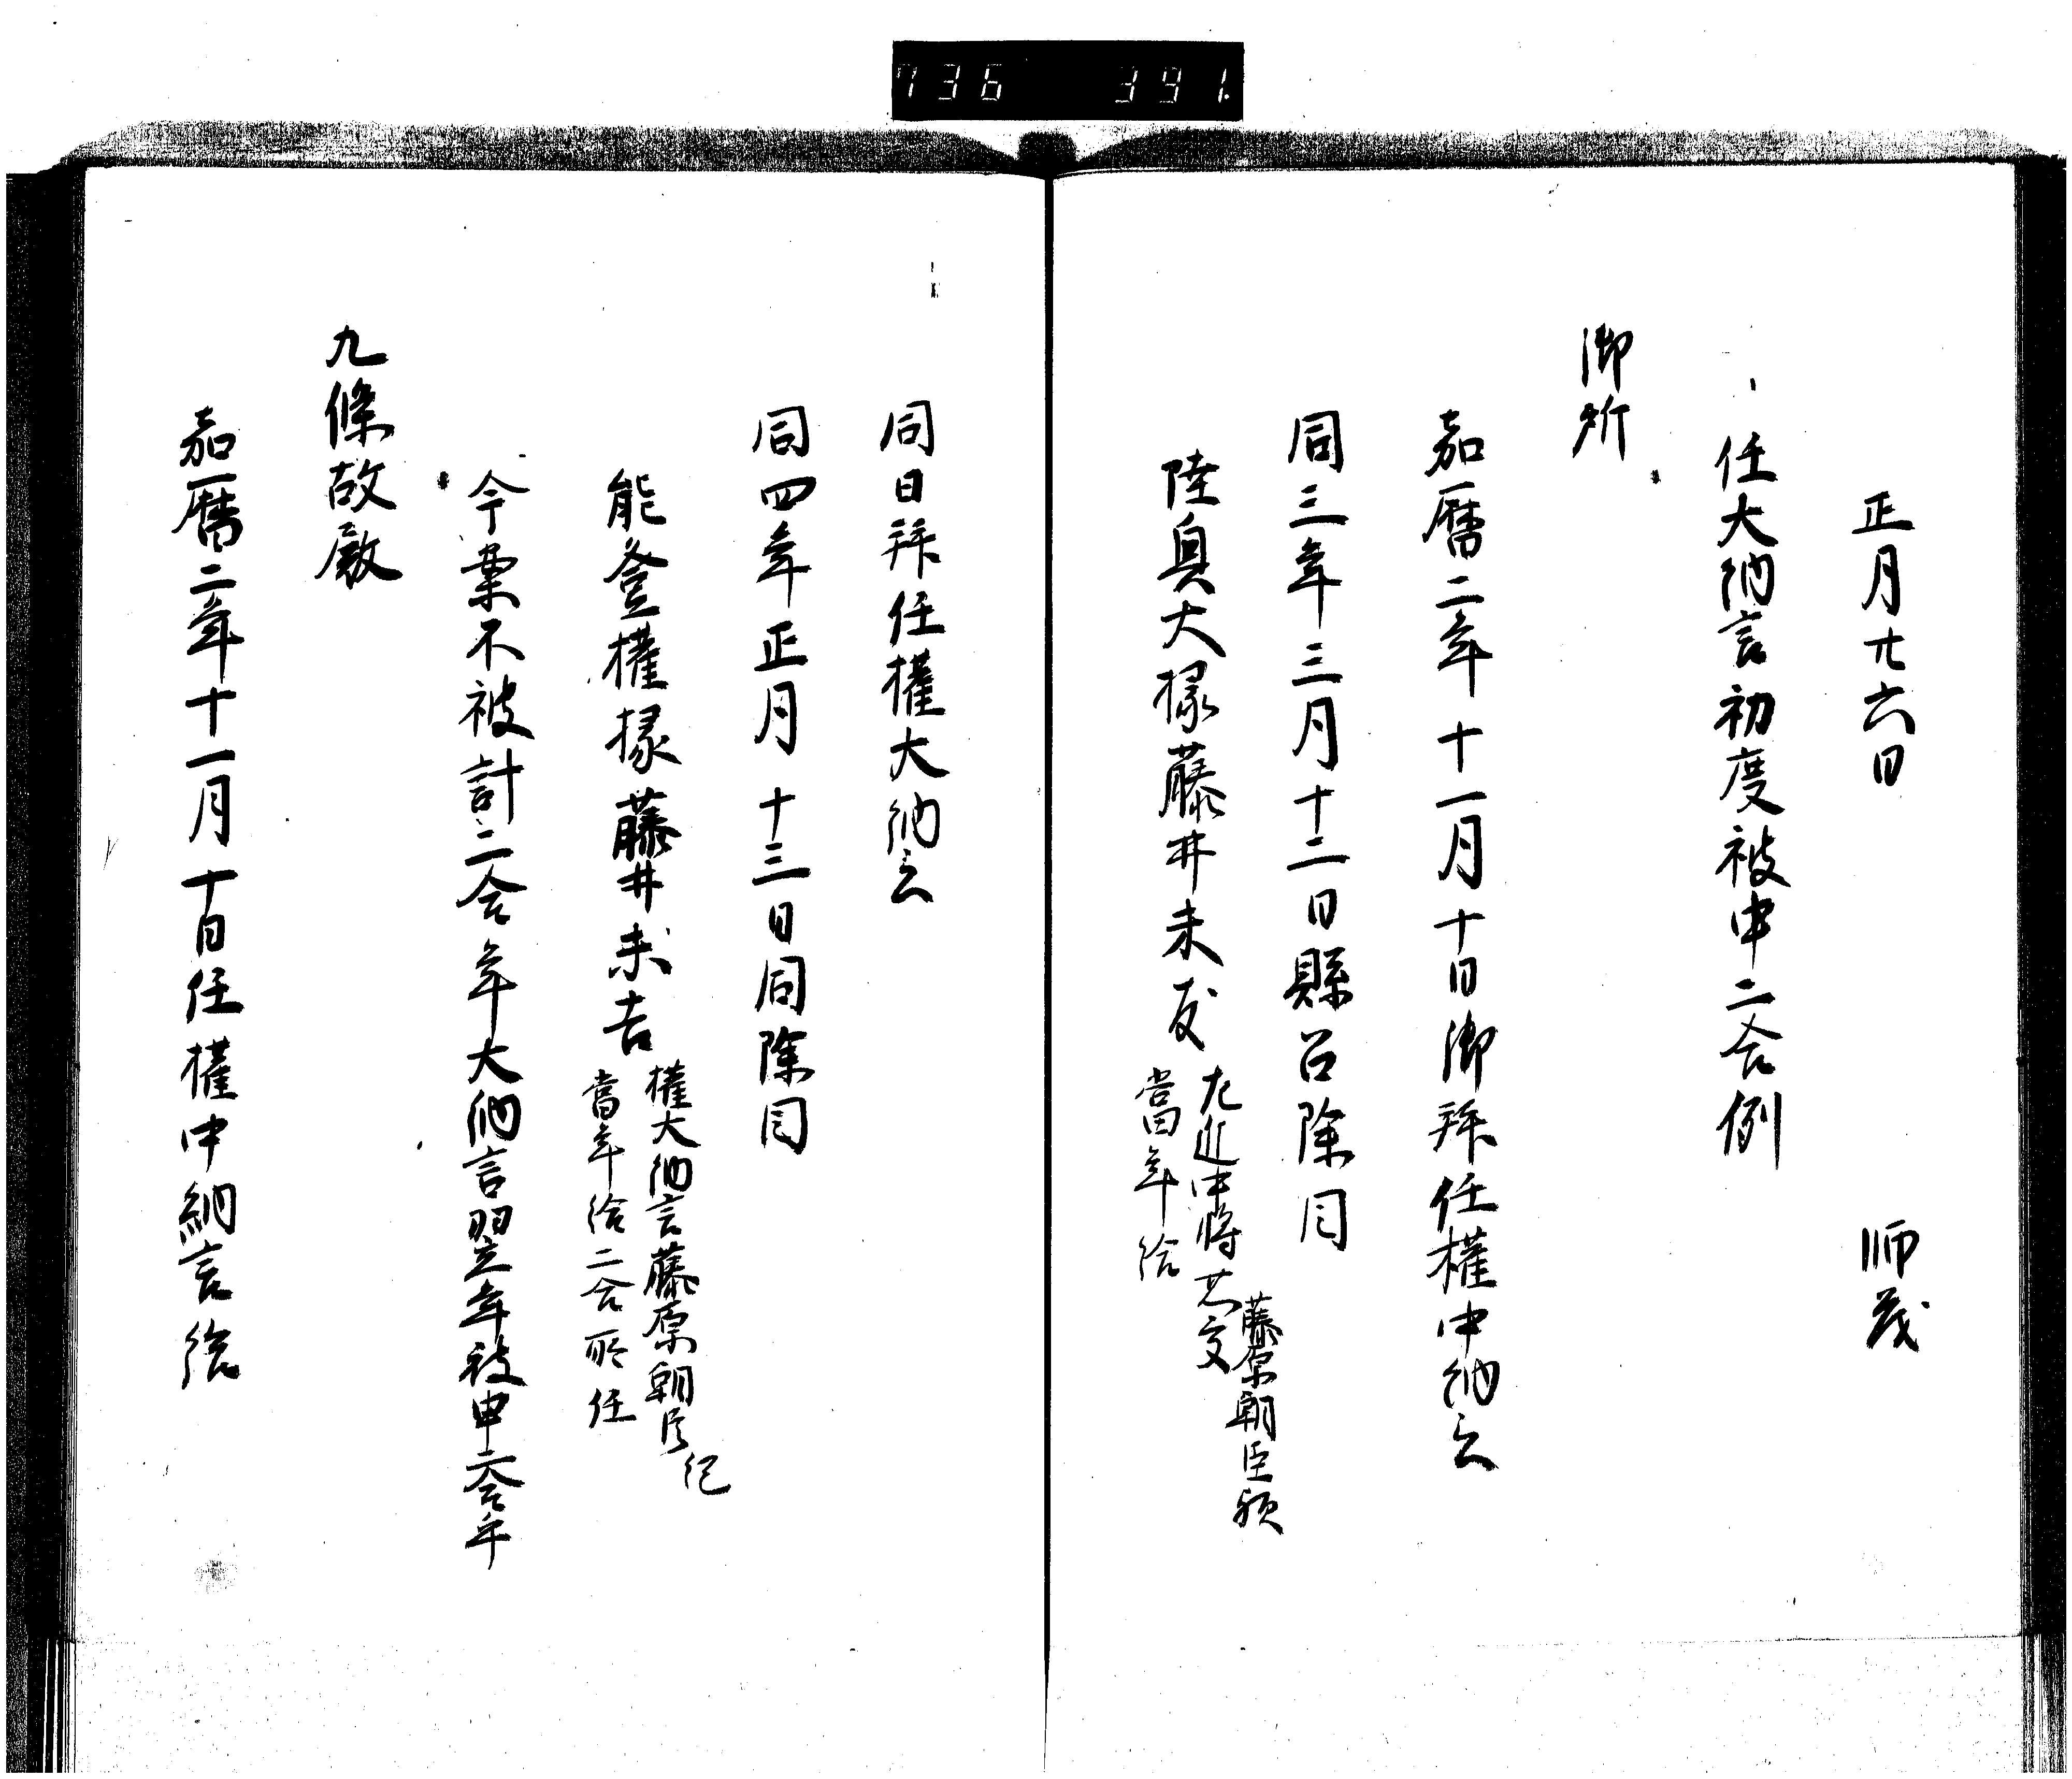 736 391
正月廿六日 师茂
任大納言初度被申二合例
御所
嘉暦二年十一月十日御拜任權中納言
同三年三月十二日縣召除目
陸奥大掾藤井未友
左近中将
藤原朝臣
當年給
同日拜任權大納言
同四年正月十三日同除目
能登權掾藤井未吉
權大納言藤原朝臣
當年給二合所任
今案不被計二合年大納言翌年被申二合年
九條故殿
嘉暦二年十一月十日任權中納言給